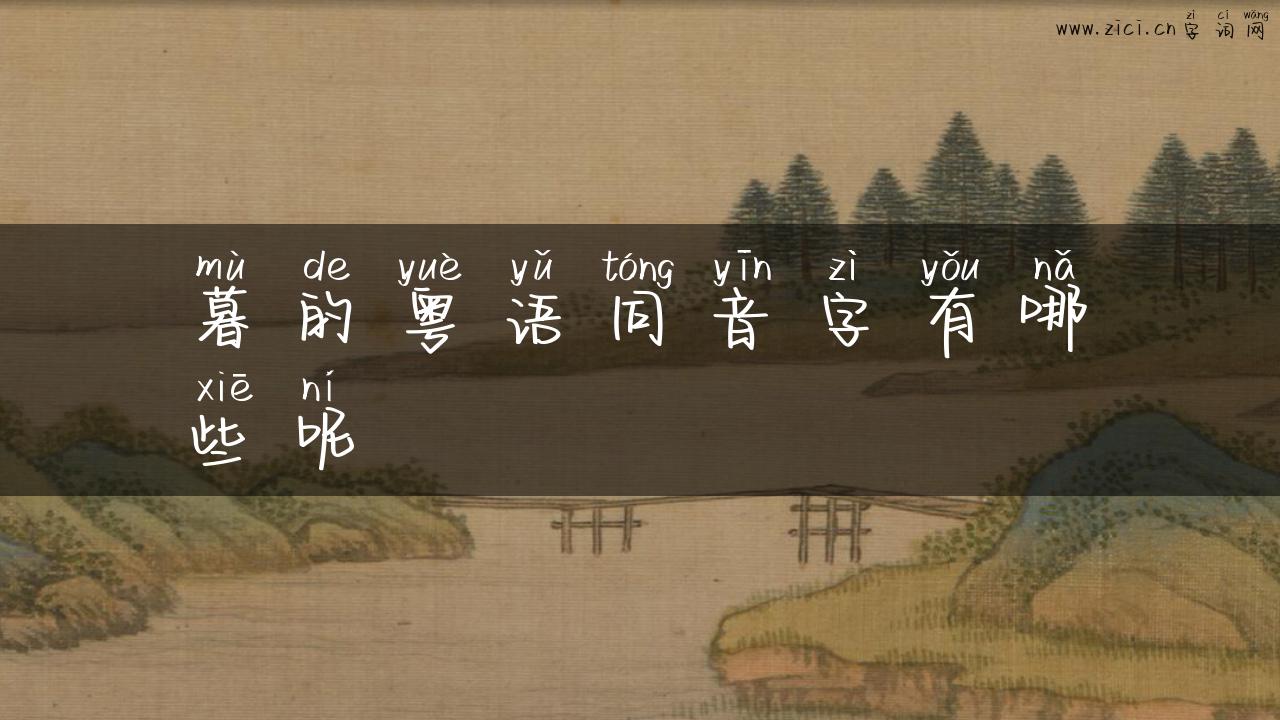 zì cí wǎng
www.zici.cn字词网
mù de yuè yǔ tóng yīn zì yǒu nǎ
暮的粤语同音字有哪
xiē ní
些呢